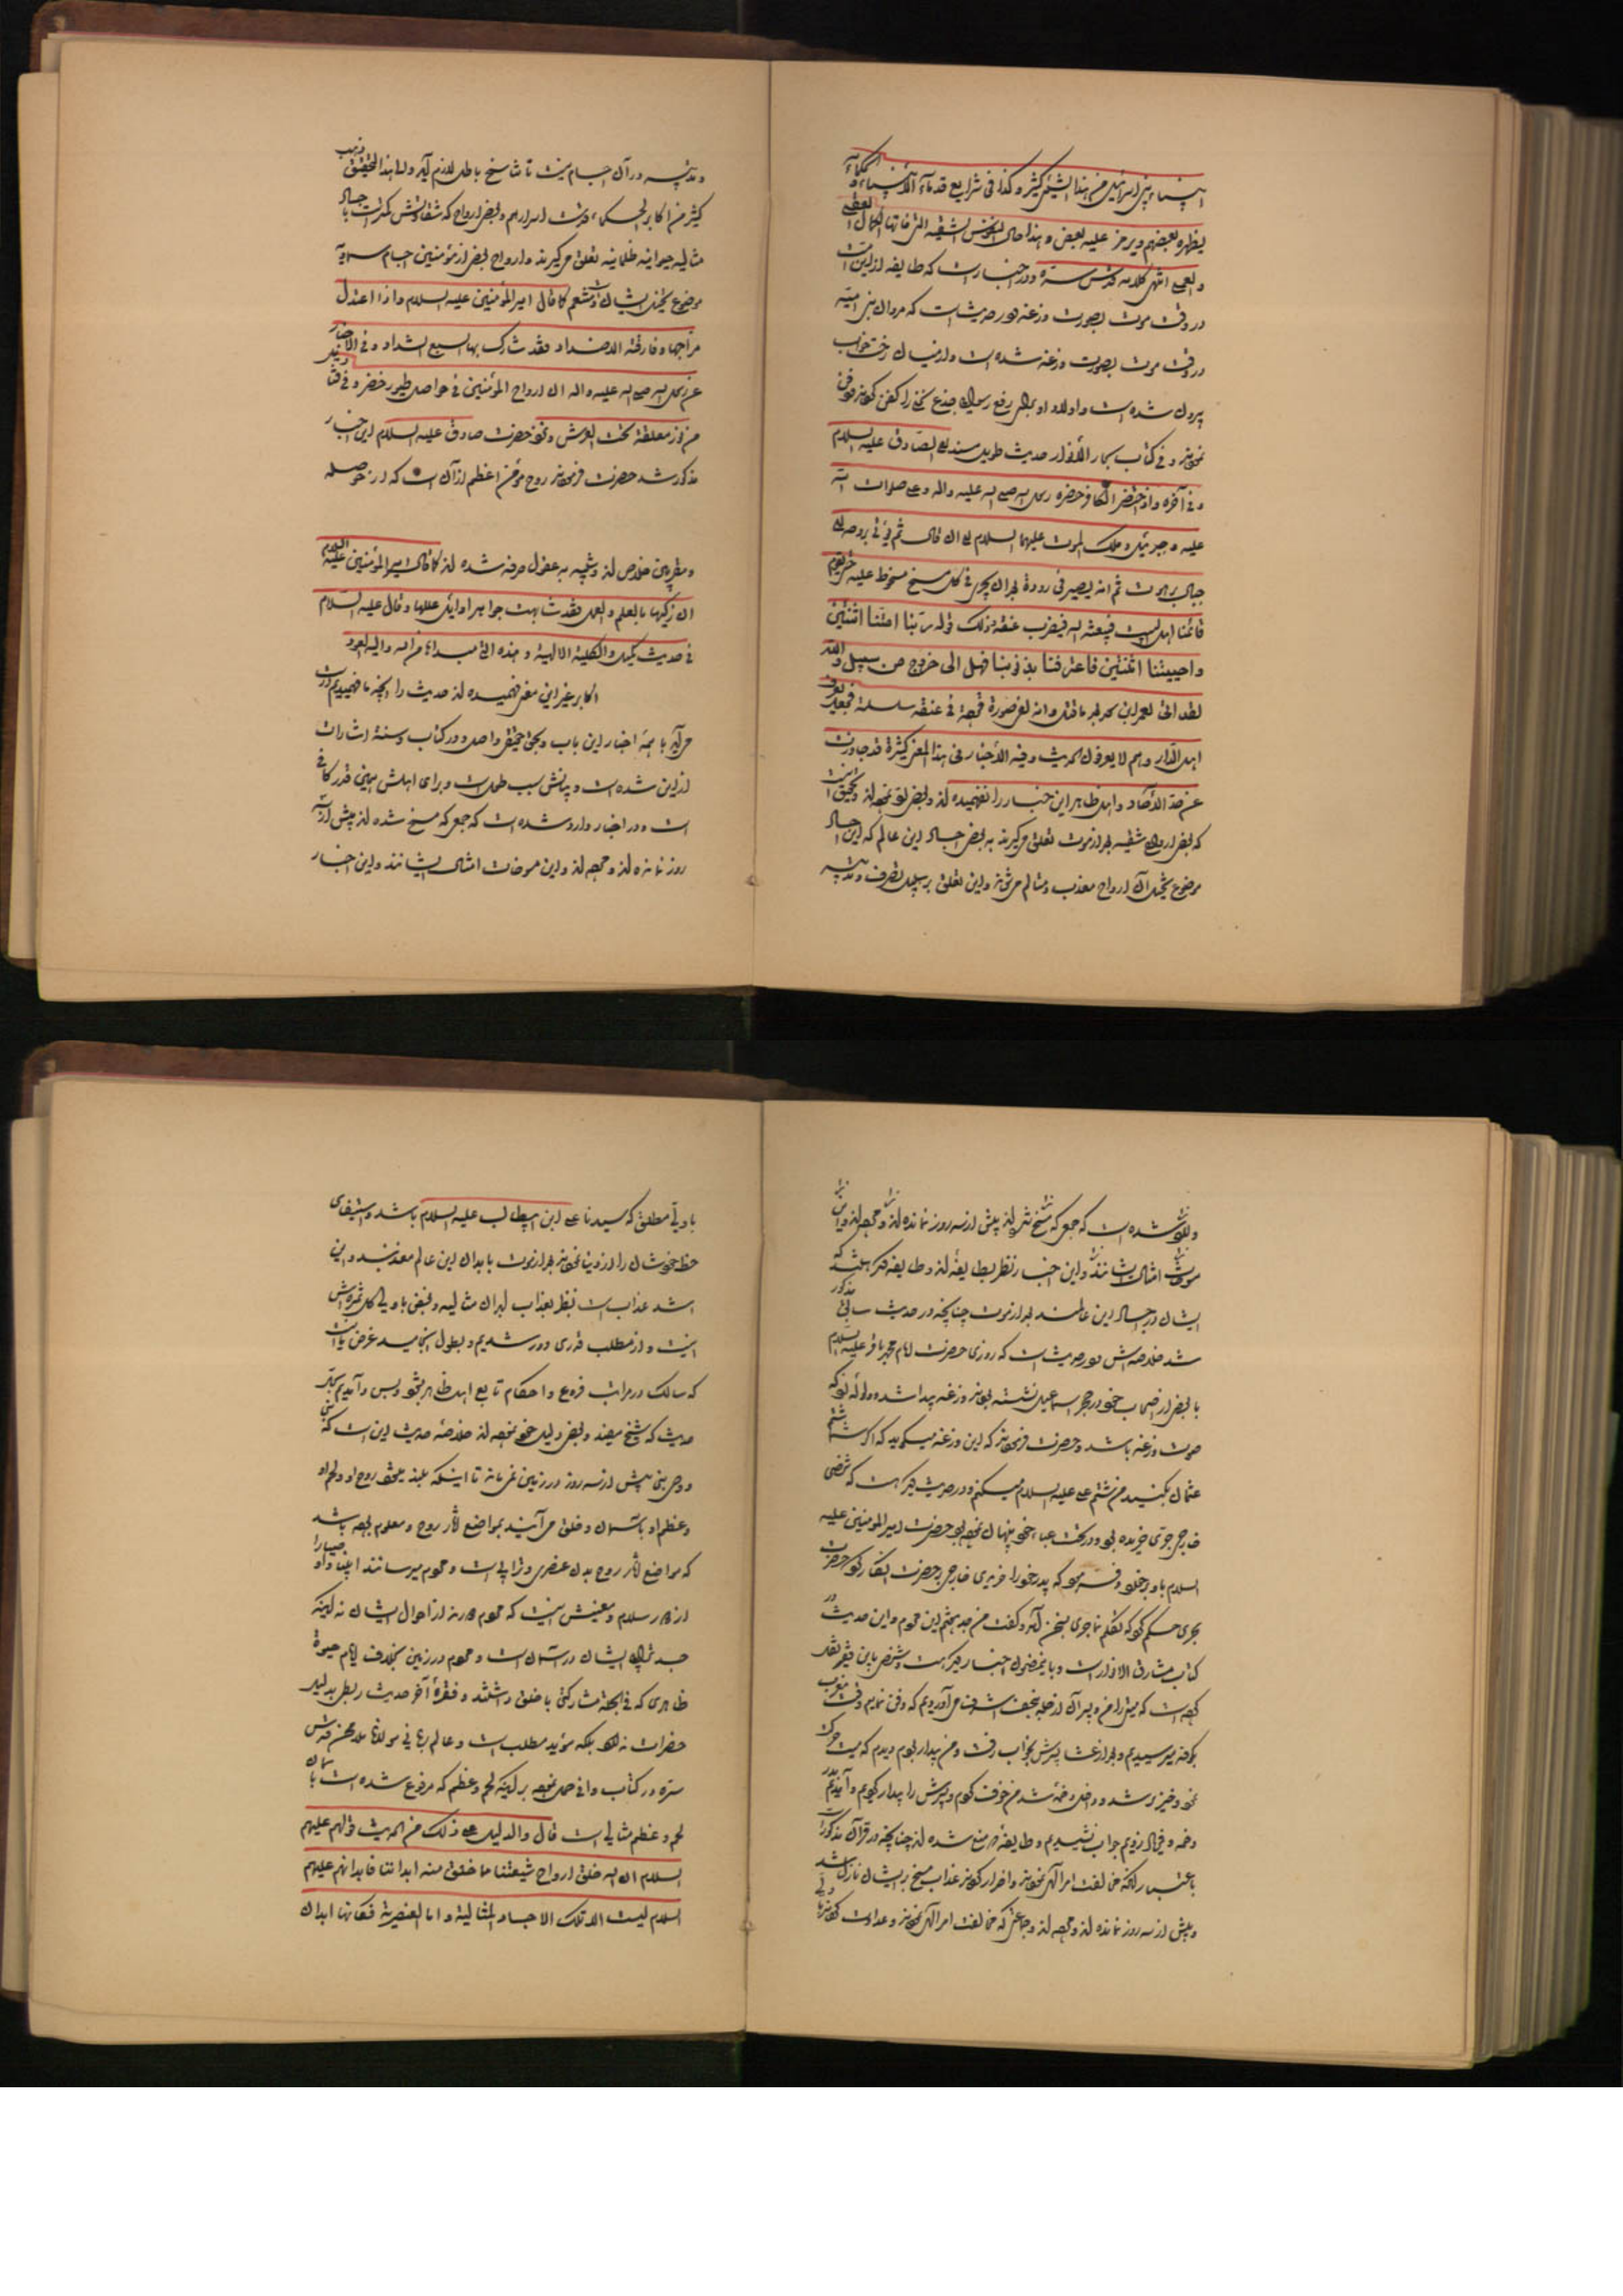 انبیاء بنی اسرائیل من هذا الشیٔ کثیر و کذا فی شرایع قدماء الأنبیاء و الحکماء
یظهره بعضهم و یرمز علیه بعض و هذا حال النفوس الشقیه التی فاتها الکمال العلمی
و العملی انتهی کلامه قدس سره و در اخبار است که طایفه از
در وقت موت بصورت وزغه و در حدیث است که مروان بنی امیه
در وقت موت بصورت وزغه شده است و از میان رخت خواب
بیرون شده است و اولاد او برای رفع رسوائی جذع نخله را کفن کرده دفن
نمودند و فی کتاب بحار الأنوار حدیث طویل مسند الی الصادق علیه السلام
و فی آخره و اذا احتضر الکافر حضره رسول الله صلی الله علیه و اله و علی صلوات الله
علیه و جبرئیل و ملک الموت علیهما السلام الی ان قال ثم
جبال برهوت ثم انه یصیر فی بعد ان یجری فی کل مسخ مسخوط علیه حتی یقوم
قائمنا اهل البیت فیبعثه الله فیضرب عنقه و ذلک قوله ربنا امتنا اثنتین
و احییتنا اثنتین فاعترفنا بذنوبنا فهل الی خروج من سبیل و الله
لقد اتی بعمر بن سعد بعد ما قتل و انه لفی صورة فی عنقه سلسلة فجعل یعرف
اهل الدار و هم لا یعرفونه الحدیث و فیه الأخبار فی هذا المعنی کثیرة قد جاوزت
عن حد الآحاد و اهل ظاهر این اخبار را نفهمیده‌اند و بعضی لغو نموده‌اند و تحقیق آنست
که بعضی ارواح شقیه بعد از موت تعلق میگیرند به بعضی اجساد این عالم که این اجساد
موضوع تخیل آن ارواح معذب و متالم می‌شوند و این تعلق بر سبیل تصرف و تدبیر
و تدبیر در آن اجسام نیست تا تناسخ باطل لازم آید و لهذا المحقق ذهب
کثیر من اکابر الحکماء قدست اسرارهم و بعضی ارواح که شقاوتش کمتر است با اجساد
مثالیه حیوانیه ظلمانیه تعلق میگیرند و ارواح بعض از مؤمنین اجسام سماویه
موضوع تخیل ایشان کما قال امیر المؤمنین علیه السلام و اذا اعتدل
مزاجها و فارقت الاضداد فقد شارک بها السبع الشداد و فی الأخبار
عن رسول الله صلی الله علیه و اله ان ارواح المؤمنین فی حواصل طیور خضر و فی قنادیل
من نور معلقة تحت العرش و نزد حضرت صادق علیه السلام این اخبار
مذکور شد حضرت فرمودند روح مؤمن اعظم از آن است که در حوصله
و مقربین خلاص‌اند و شبیه به عقول صرفه شده‌اند کما قال امیر المؤمنین علیه السلام
ان زکیها بالعلم و العمل فقد شابهت جواهر اوایل عللها و قال علیه السلام
فی حدیث کمیل و الکلیة الالهیة و هذه التی مبدئها من الله و الیه تعود
اکابر غیر این معنی فهمیده‌اند حدیث را و آنچه ما فهمیدیم درست
می‌آید با همه اخبار این باب و بحق تحقیق واصل و در کتاب و سنة اشارات
از این شده است و بیانش سبب طول است و برای اهلش همین قدر کافی
است و در اخبار وارد شده است که جمعی که مسخ شده‌اند بیش از سه
روز نمانده‌اند و این مسوخات امثال ایشانند و این اخبار
وارد شده است که جمعی که مسخ شده‌اند بیش از سه روز نمانده‌اند و
امثال ایشانند و این اخبار نظر بطایفه‌اند و طایفه دیگر هستند که
ایشان در اجساد این عالمند بعد از موت چنانچه در حدیث سابق مذکور
شد خلاصه‌اش در حدیث است که روزی حضرت امام محمد باقر علیه السلام
با بعضی از اصحاب خود در حجر اسماعیل نشسته بودند وزغه پیدا شد و
صوت وزغه باشد و حضرت فرمودند که این وزغه میگوید که اگر شما شتم
عثمان بکنید من شتم علی علیه السلام میکنم و در حدیث دیگر است که شخصی
خارجی جری خریده بود و در تحت عباء خود پنهان نموده بود حضرت امیر المؤمنین علیه
السلام باو برخورد و فرمود که پدر خود را خریدی خارجی بر حضرت انکار کرد حضرت
بجری حکم کرد که تکلم نما جری بسخن آمد و گفت من جد پنجم این مردم و این حدیث در
کتاب مشارق الانوار است و باین مضمون اخبار دیگر هست و شخصی باین فقیر نقل
کرده است که میتی را من و پسر آن از حله بنجف اشرف می‌آوردیم که دفن نمائیم وقت مغرب
بکوفه رسیدیم و بعد از عشا پسرش بخواب رفت و من بیدار بودم و دیدم که میت حرکت
نمود و خیز شد و داخل دخمه شد من خوف کردم و پسرش را بیدار کردیم و آمدیم بدر
دخمه و فریاد زدیم جواب نشنیدیم و طایفه مسخ شده‌اند چنانچه در قرآن مذکور است
باعتبار آنکه مخالفت امر الهی نمودند و اضرار کردند عذاب مسخ بر ایشان نازل شد
و بیش از سه روز نمانده‌اند و جماعتی که مخالفت امر الهی نمودند و عداوت کردند با ولی
با ولی مطلق که سیدنا علی ابن ابیطالب علیه السلام باشد و استیفای
حظ خودشان را از دنیا نمودند بعد از موت با ابدان این عالم معذبند و این
اشد عذاب است نظر بعذاب ابدان مثالیه و بغض با ولی کل ثمره‌اش
اینست و از مطلب قدری دور شدیم و بطول انجامید غرض ما آنست
که سالک در مراتب فروع و احکام تابع اهل ظاهر شود و بس و آمدیم بر
حدیث که شیخ مفید و بعضی دلیل خود نموده‌اند خلاصه حدیث این است که نبی
و وصی نبی بیش از سه روز در زمین نمی‌ماند تا اینکه بلند میشود روح او و لحم او
و عظم او بآسمان و خلق می‌آیند بمواضع آثار روح و معلوم بوده باشد
که مواضع آثار روح بدن عنصری و ترابی است و مردم میرسانند
از دور سلام و معنیش اینست که مردم دورند از احوال ایشان نه اینکه
جسد ترابی ایشان در آسمان است و مردم در زمین بخلاف ایام حیوة
ظاهری که فی الجمله مشارکتی با خلق داشتند و فقره آخر حدیث ربطی بدلیل
حضرات ندارد بلکه مؤید مطلب است و عالم ربانی مولانا ملا محسن قدس
سره در کتاب وافی حمل نموده بر اینکه لحم و عظم که مرفوع شده است بآسمان
لحم و عظم مثالی است قال و الدلیل علی ذلک من الحدیث قولهم علیهم
السلام ان الله خلق ارواح شیعتنا مما خلق منه ابداننا فابدانهم علیهم
السلام لیست الا تلک الاجساد المثالیة و اما العنصریة فکانها ابدان